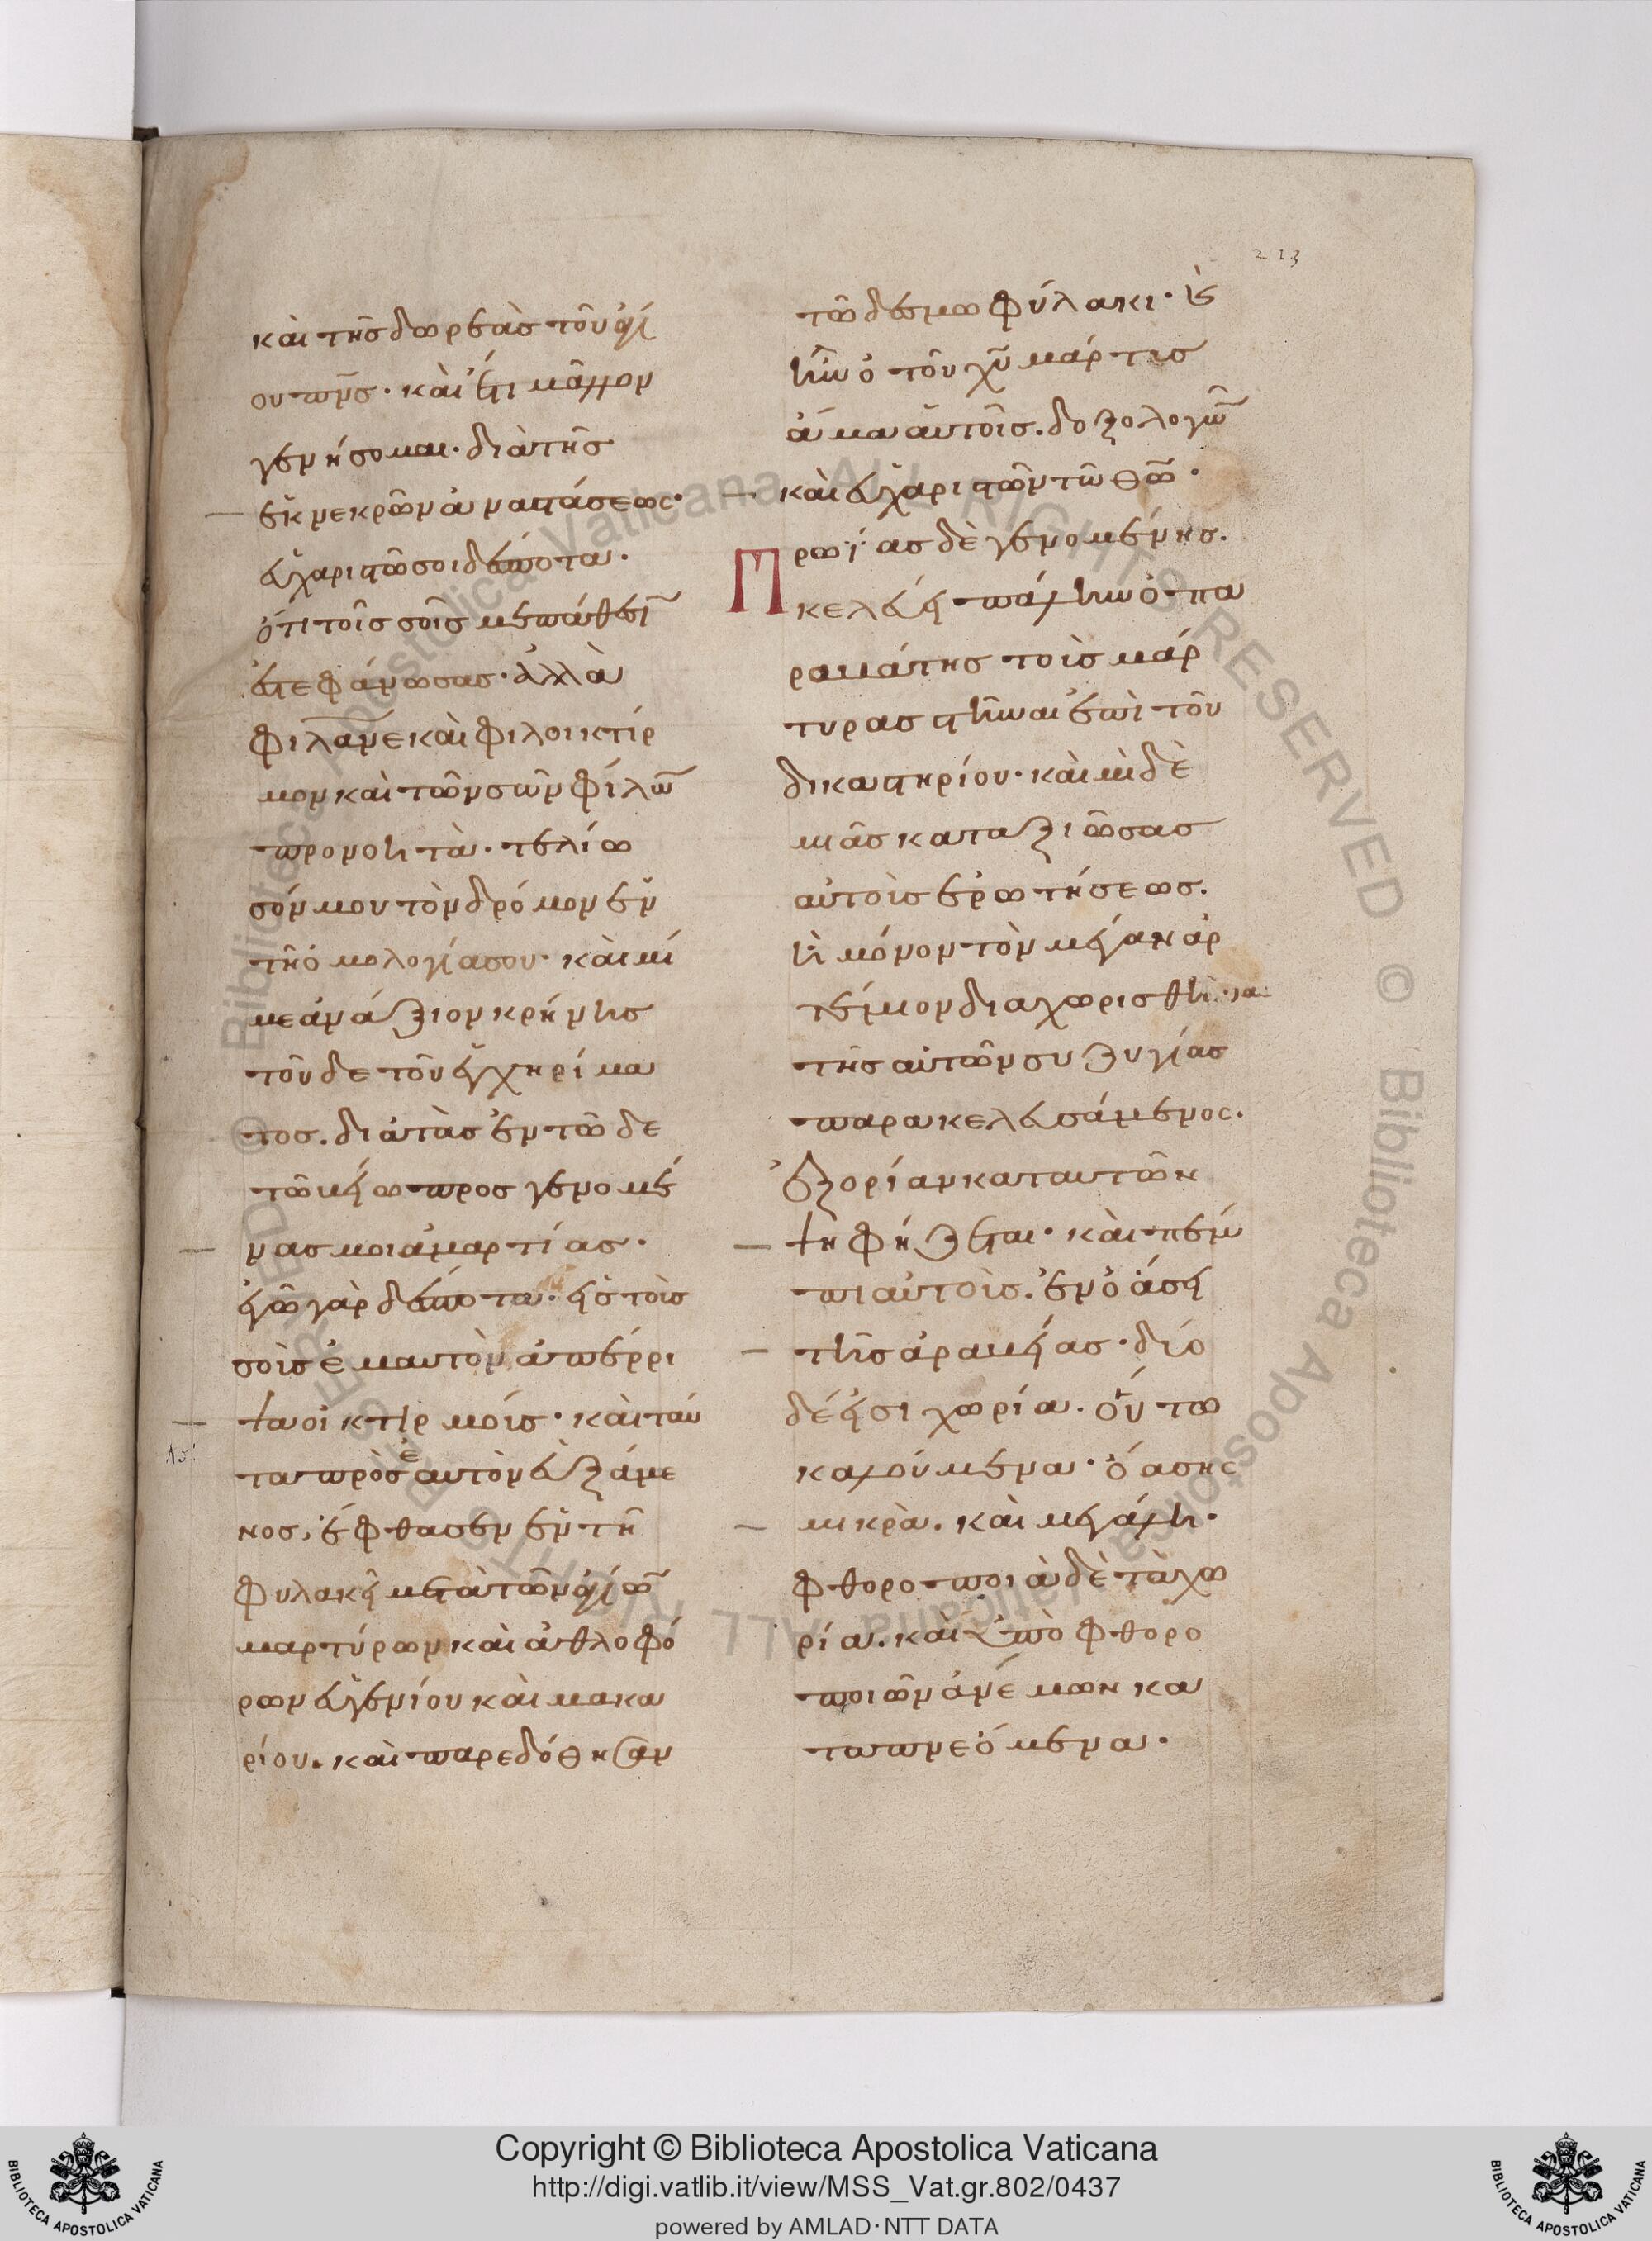 213
καὶ τῆς δωρεὰς τοῦ ἁγί
ου πν̅ς· καὶ ἔτι μᾶλλον
γενήσομαι· διὰ τῆς
ἐκ νεκρῶν ἀναστάσεως·
εὐχαριστῶ σοι δέσποτα·
ὅτι τοῖς σοῖς με παθεῖ̅
ἐστεφάνωσας· ἀλλὰ
φιλα̅νε καὶ φιλοικτίρ
μον καὶ τῶν σῶν φίλω̅
προνοητὰ· τελίω
σόν μου τὸν δρόμον ἐν
τῆ ὁμολογία σου· καὶ μί
με ἀνάξιον κρήνης
τοῦδε τοῦ ἐγχηρίμα
τος. διὰ τὰς ἐν τῶδε
τῶ βίω προσγενομέ
νας μοι ἁμαρτίας·
ἐγῶ γὰρ δέσποτα· εἰς τοὶς
σοὶς ἐμαυτὸν ἀπέρρι
ψα οἰκτιρμοίς· καὶ ταύ
τα πρὸς ἑαυτὸν εὐξάμε
νος, ἔφθασεν ἐν τῆ
φυλακῆ μετὰ τῶν ἁγίω̅
μαρτύρων καὶ ἀθλοφό
ρων εὐγενίου καὶ μακα
ρίου. καὶ παρεδόθησαν
τῶ δεσμωφύλακι· καὶ
ἦν ὁ τοῦ χ̅υ μάρτις
ἅμα αὐτοῖς. δοξολογῶ̅
καὶ εὐχαριστῶν τῶ θ̅ω·
Πρωΐας δὲ γενομένης.
κελεύει πάλην ὁ πα
ραβάτης τοὶς μάρ
τυρας στῆναι ἐπὶ τοῦ
δικαστηρίου· καὶ μὶ δὲ
μιᾶς καταξιῶσας
αὐτοὶς ἐρωτήσεως.
ἢ μόνον τὸν μέγαν ἀρ
τέμιον διαχωρισθῆναι
τῆς αὐτῶν συζυγίας
παρακελευσάμενος.
ἐξορίαν κατ αυτῶν
ψηφήζεται· καὶ πέμ
πι αὐτοὶς. ἐν ὀάσει
τῆς ἀραβείας· δύο
δέ εἰσι χωρία. οὕτω
καλούμενα· ὄασης
μικρὰ. καὶ μεγάλη·
φθοροποιὰ δὲ τὰ χω
ρία. καὶ ὑπὸ φθορο
ποιῶν ἀνέμων κα
ταπνεόμενα·
Copyright © Biblioteca Apostolica Vaticana
http://digi.vatlib.it/view/MSS_Vat.gr.802/0437
powered by AMLAD·NTT DATA
BIBLIOTECA APOSTOLICA VATICANA
BIBLIOTECA APOSTOLICA VATICANA
© Biblioteca Apostolica Vaticana ALL RIGHTS RESERVED © Biblioteca Apostolica Vaticana ALL RIGHTS RESERVED